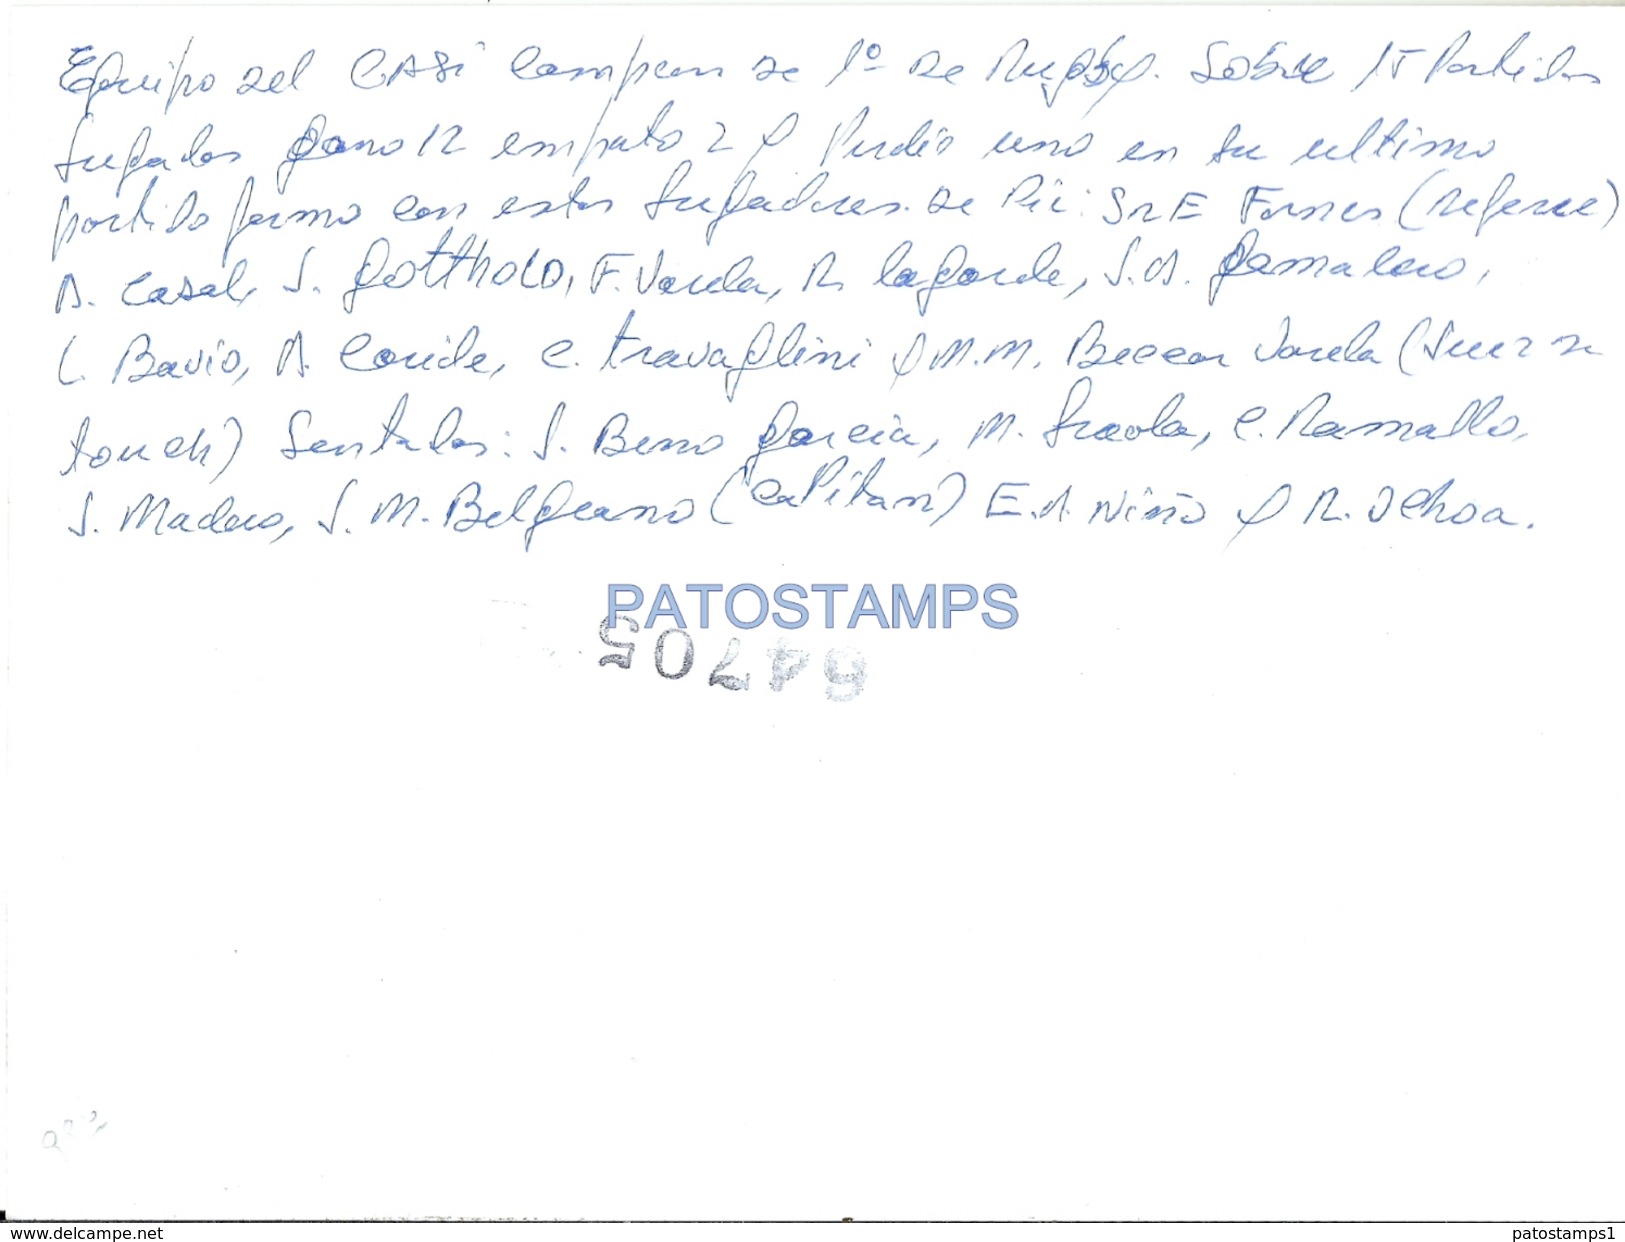 Equipo del CASI Campeon de 1º de Rugby. Sobre 15 Partidos
Jugados gano 12 empato 2 y Perdio uno en su ultimo
partido formo con estos Jugadores. De Pie: Sr E Forres (referee)
A. Casal, J. Gotthold, F. Varela, R. Lagarde, J. A. Gamalero,
C. Bavio, A. Conde, C. Travaglini y M.M. Beccar Varela (Juez de
touch) Sentados: J. Beno Garcia, M. Iraola, C. Ramallo,
J. Madero, J. M. Belgrano (Capitan) E. A. Niño y R. Ochoa.
PATOSTAMPS
64705
delcampe.net
patostamps1